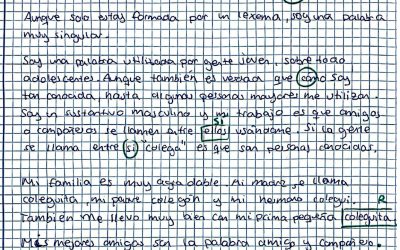 Aunque solo estoy formada por un lexema, soy una palabra
muy singular.
Soy una palabra utilizada por gente joven, sobre todo
adolescentes. Aunque también es verdad que como soy
tan conocida, hasta algunas personas mayores me utilizan.
Soy un sustantivo masculino y mi trabajo es que amigos
SI
o compañeros se llamen entre ellos usándome. Si la gente
se llama entre si "colega" es que son personas conocidas.
Mi familia es muy agradable. Mi madre se llama
coleguita, mi padre colegón y mi hermano colegui.
R
También me llevo muy bien con mi prima pequeña coleguita.
Mis mejores amigos son la palabra amigo y compañero.